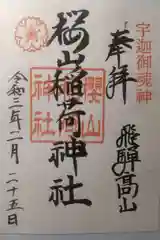 宇迦御魂神
奉拝
飛騨高山
桜山稲荷神社
櫻山
神社
令和三年二月二十五日